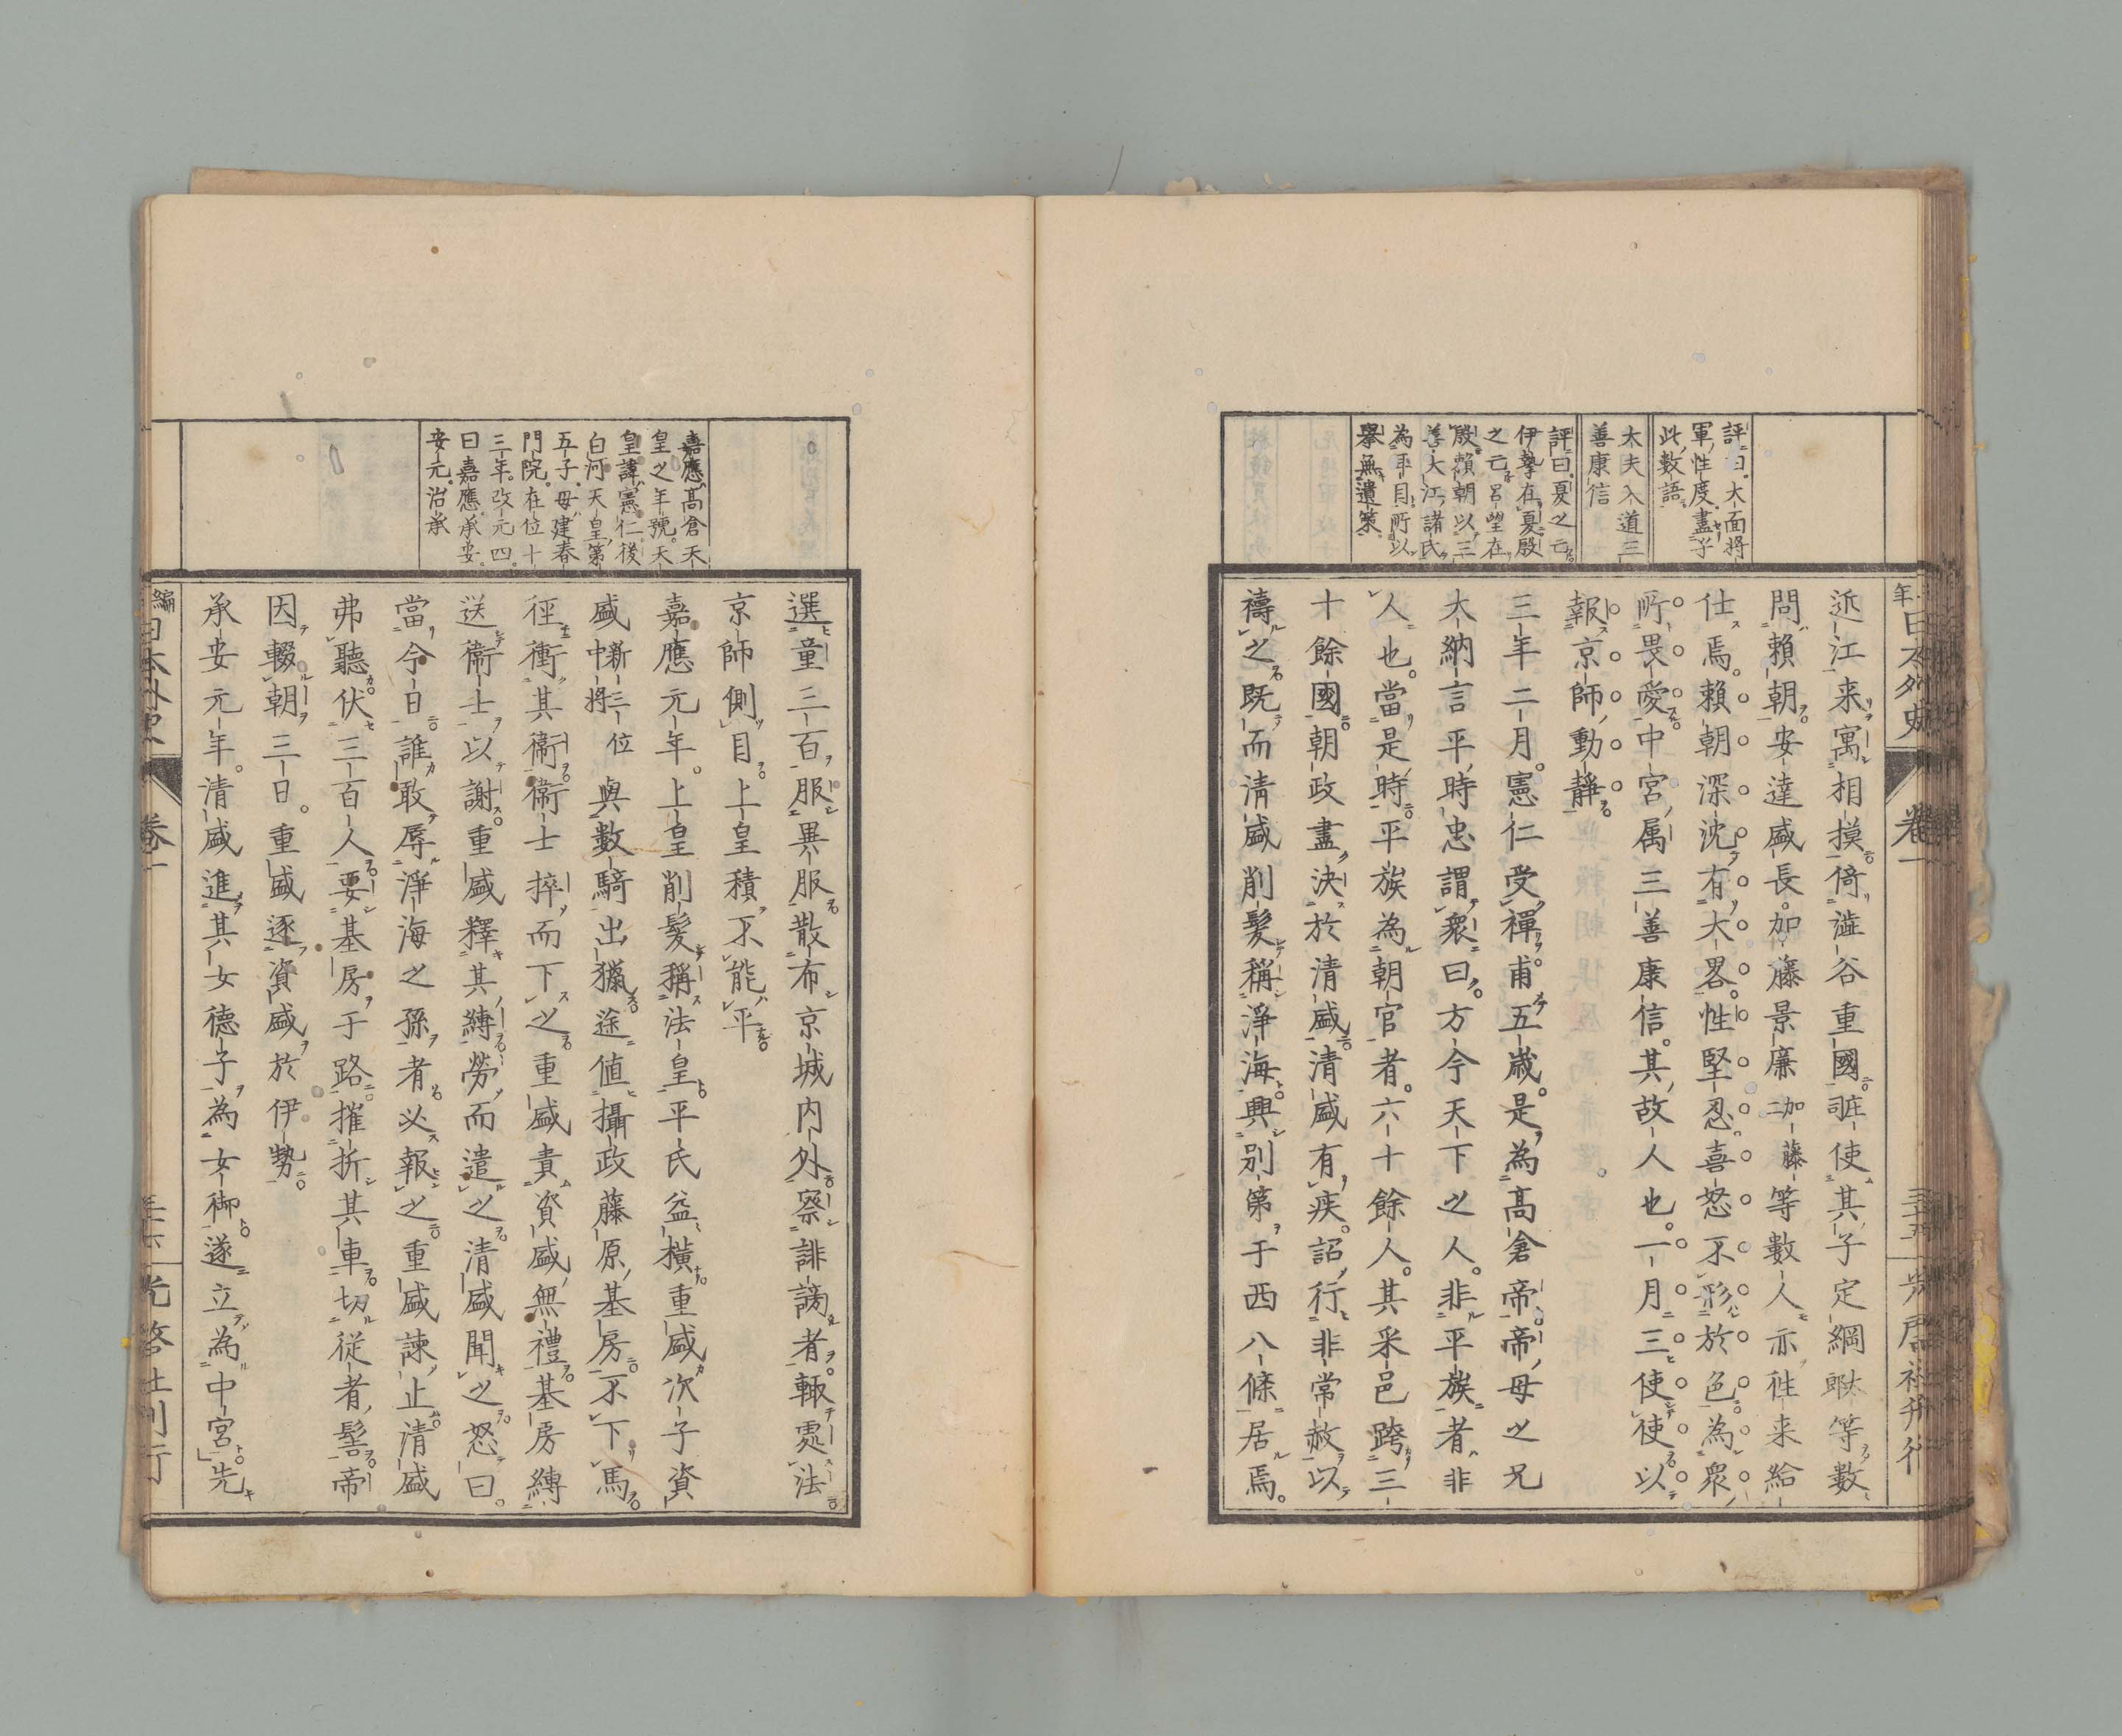 評曰。大面將
軍性度盡于
此數語。
大夫入道三
善康信
評曰。夏之云
伊摯在夏殷
之云呂望在
殷賴朝以三
善大江諸氏
為耳目所以
擧無遺策
近江来寓相摸倚澁谷重國詎使其子定綱等數
問賴朝安達盛長加藤景廉加藤二等數人亦徃来給
仕焉。賴朝深沈有大畧。性堅忍喜怒不形於色為衆
所畏愛中宮属三善康信。其故人也。一月三使使以
報京師動靜
三年二月。憲仁受禪。甫五歳。是為髙倉帝帝母之兄
大納言平時忠謂衆曰。方今天下之人。非平族者非
人也。當是時。平族為朝官者。六十餘人。其采邑跨三
十餘國。朝政盡決於清盛。清盛有疾。詔行非常赦以
禱之既而清盛削髮稱淨海興別第于西八條居焉。
嘉應髙倉天
皇之年號。天
皇諱憲仁後
白河天皇第
五子。母建春
門院。在位十
三年。改元四。
曰嘉應承安。
安元。治承
選童三百服異服散布京城内外察誹謗者。輙處法
京師側目。上皇積不能平
嘉應元年。上皇削髮稱法皇平氏益橫重盛次子資
盛新三位中将與數騎出獵途値攝政藤原基房不下馬
徑衝其衞衞士捽而下之重盛責資盛無禮基房縛
送衞士以謝重盛釋其縛勞而遣之清盛聞之怒曰。
當今日誰敢辱淨海之孫者必報之重盛諫止清盛
弗聽伏三百人要基房于路摧折其車切從者髻帝
因輟朝三日。重盛逐資盛於伊勢。
承安元年。清盛進其女德子為女御遂立為中宮先
編年日本外史
卷一
三十五
三十六
光啓社刊行